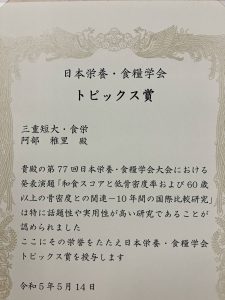 日本栄養・食糧学会
トピックス賞
三重短大・食栄
阿部 稚里 殿
貴殿の第77回日本栄養・食糧学会大会における
発表演題「和食スコアと低骨密度率および60歳
以上の骨密度との関連－10年間の国際比較研究」
は特に話題性や実用性が高い研究であることが
認められました
ここにその栄誉をたたえ日本栄養・食糧学会
トピックス賞を授与します
令和5年5月14日